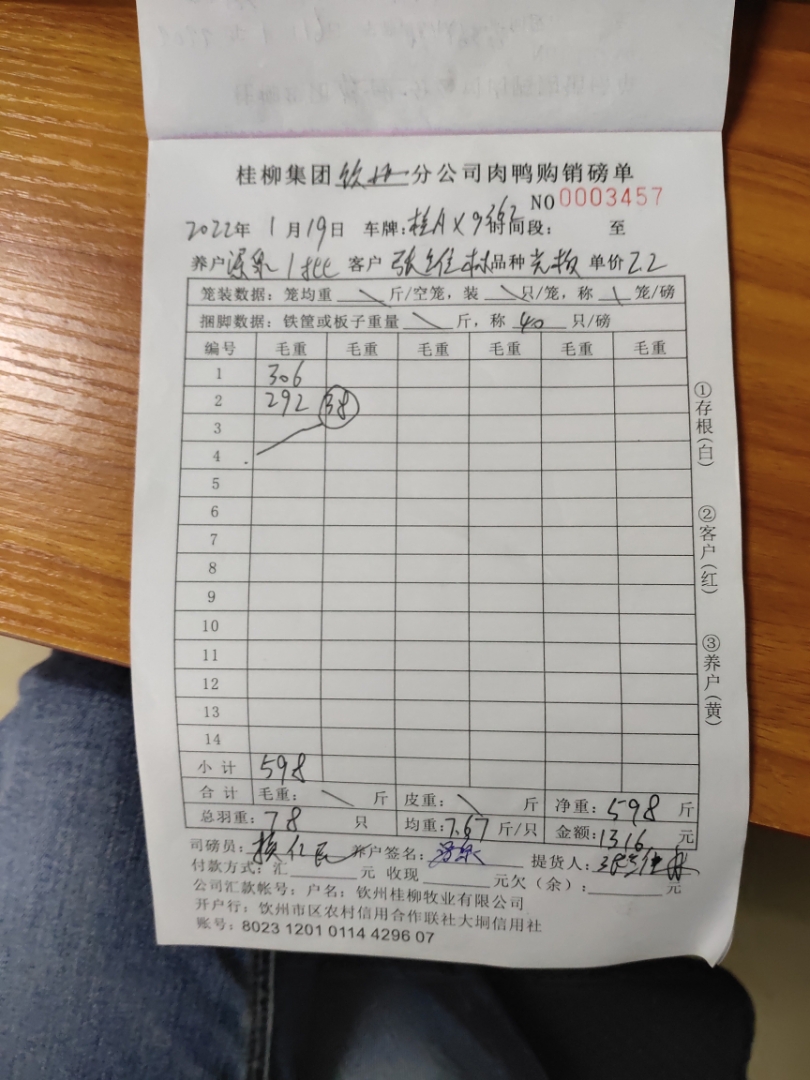 桂柳集团钦州分公司肉鸭购销磅单
NO 0003457
2022年 1月19日 车牌:桂A 时间段: 至
养户 客户 张 林 品种 单价 2.2
笼装数据:笼均重 \ 斤/空笼,装 \ 只/笼,称 \ 笼/磅
捆脚数据:铁筐或板子重量 \ 斤,称 40 只/磅
编号 毛重 毛重 毛重 毛重 毛重 毛重
1 306
2 292 38
3
4
5
6
7
8
9
10
11
12
13
14
小计 598
合计 毛重: \ 斤 皮重: \ 斤 净重:598 斤
总羽重:78 只 均重:7.67 斤/只 金额:1316 元
司磅员: 养户签名: 提货人:
付款方式:汇 元 收现 元欠(余): 元
公司汇款帐号:户名:钦州桂柳牧业有限公司
开户行:钦州市区农村信用合作联社大垌信用社
账号:8023 1201 0114 4296 07
①存根(白)
②客户(红)
③养户(黄)